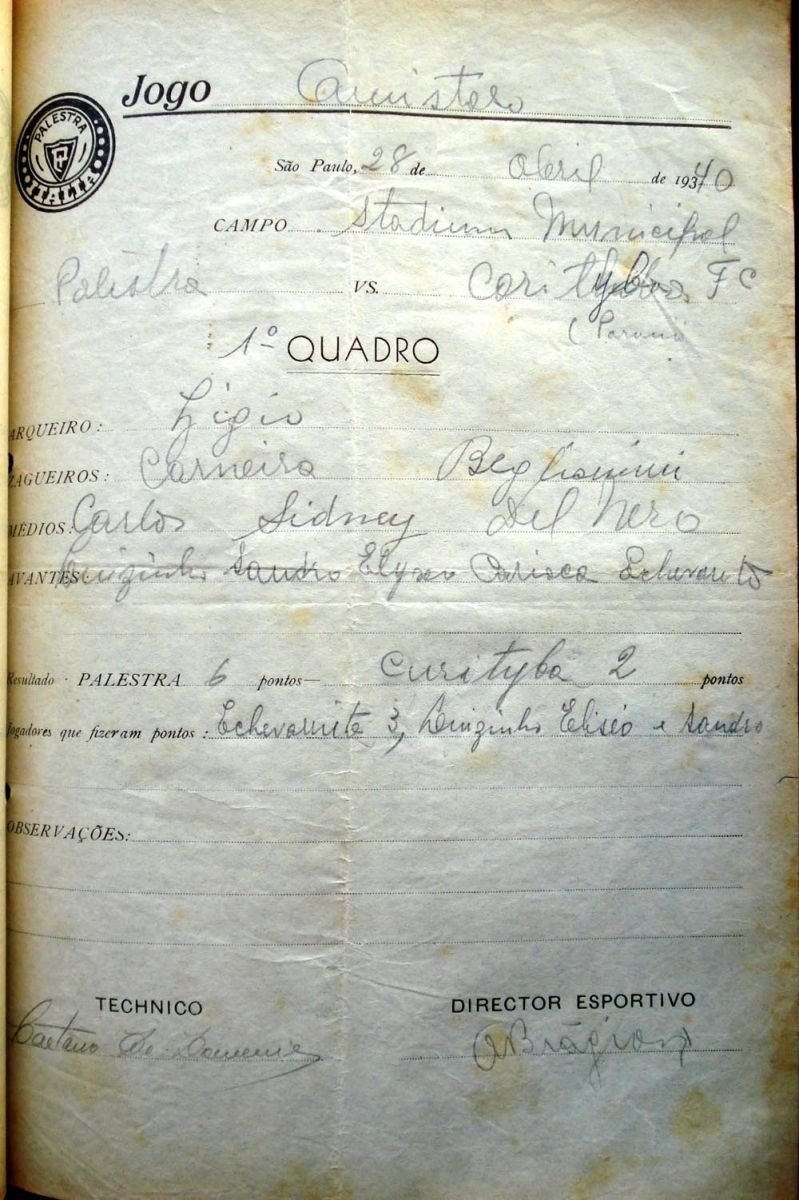 Jogo Amistoso
PALESTRA
ITALIA
São Paulo, 28 de Abril de 1940
CAMPO Stadium Municipal
Palestra VS. Coritybba FC
(Paraná
1º QUADRO
ARQUEIRO: Gigio
ZAGUEIROS: Carneira Begliomini
MÉDIOS: Carlos Sidney Del Nero
AVANTES: Luizinho Sandro Elyseo Carioca Echevarrieta
Resultado PALESTRA 6 pontos — Curityba 2 pontos
Jogadores que fizeram pontos: Echevarrieta 3, Luizinho Eliseo e Sandro
OBSERVAÇÕES:
TECHNICO DIRECTOR ESPORTIVO
Caetano De Domenico